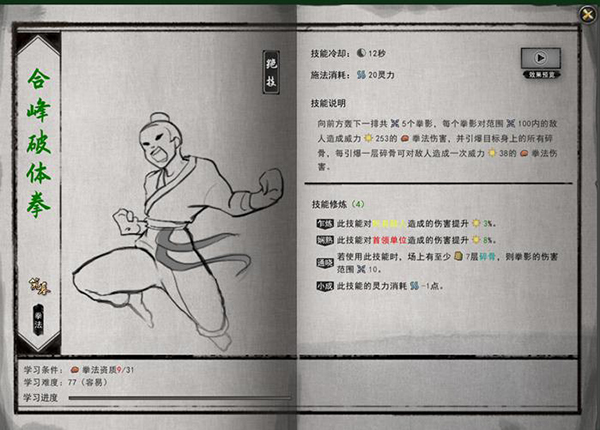 合峰破体拳
拳法
绝技
技能冷却：12秒
施法消耗：20灵力
效果预览
技能说明
向前方轰下一排共5个拳影，每个拳影对范围100内的敌
人造成威力253的拳法伤害，并引爆目标身上的所有碎
骨，每引爆一层碎骨可对敌人造成一次威力38的拳法伤
害。
技能修炼（4）
乍练 此技能对造成的伤害提升3%。
娴熟 此技能对首领单位造成的伤害提升8%。
通晓 若使用此技能时，场上有至少7层碎骨，则拳影的伤害
范围10。
小成 此技能的灵力消耗-1点。
学习条件：拳法资质9/31
学习难度：77（容易）
学习进度